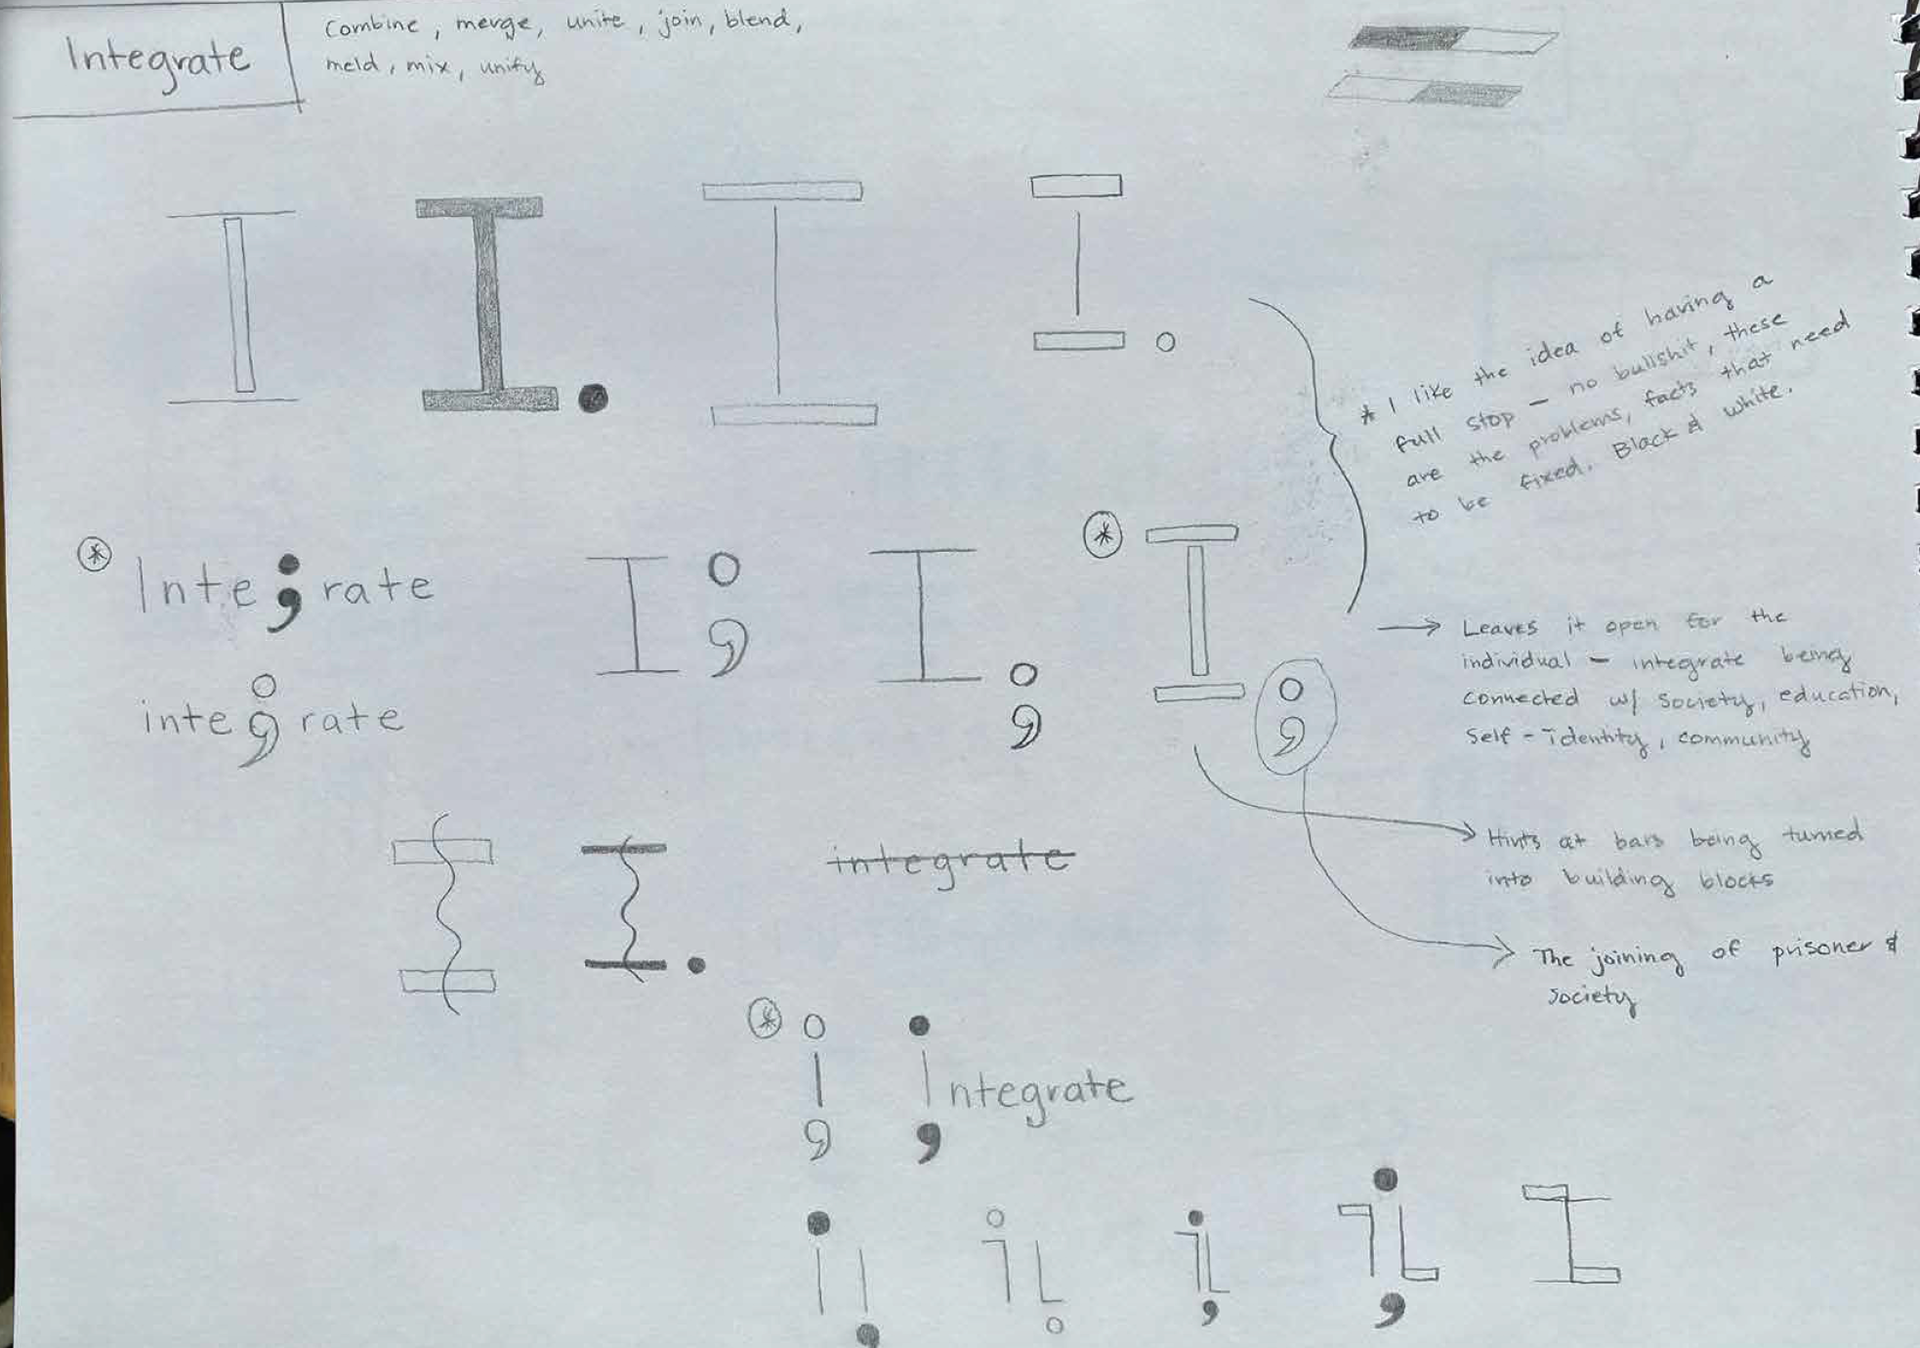 Integrate
Combine, merge, unite, join, blend,
meld, mix, unify
I
I.
I
I.
* I like the idea of having a
full stop – no bullshit, these
are the problems, facts that need
to be fixed. Black & white.
* Inte;rate
I;
I;
* I;
inte;rate
→ Leaves it open for the
individual – integrate being
connected w/ society, education,
self-identity, community
I
I.
integrate
→ Hints at bars being turned
into building blocks
→ The joining of prisoner &
society
* i,
i,ntegrate